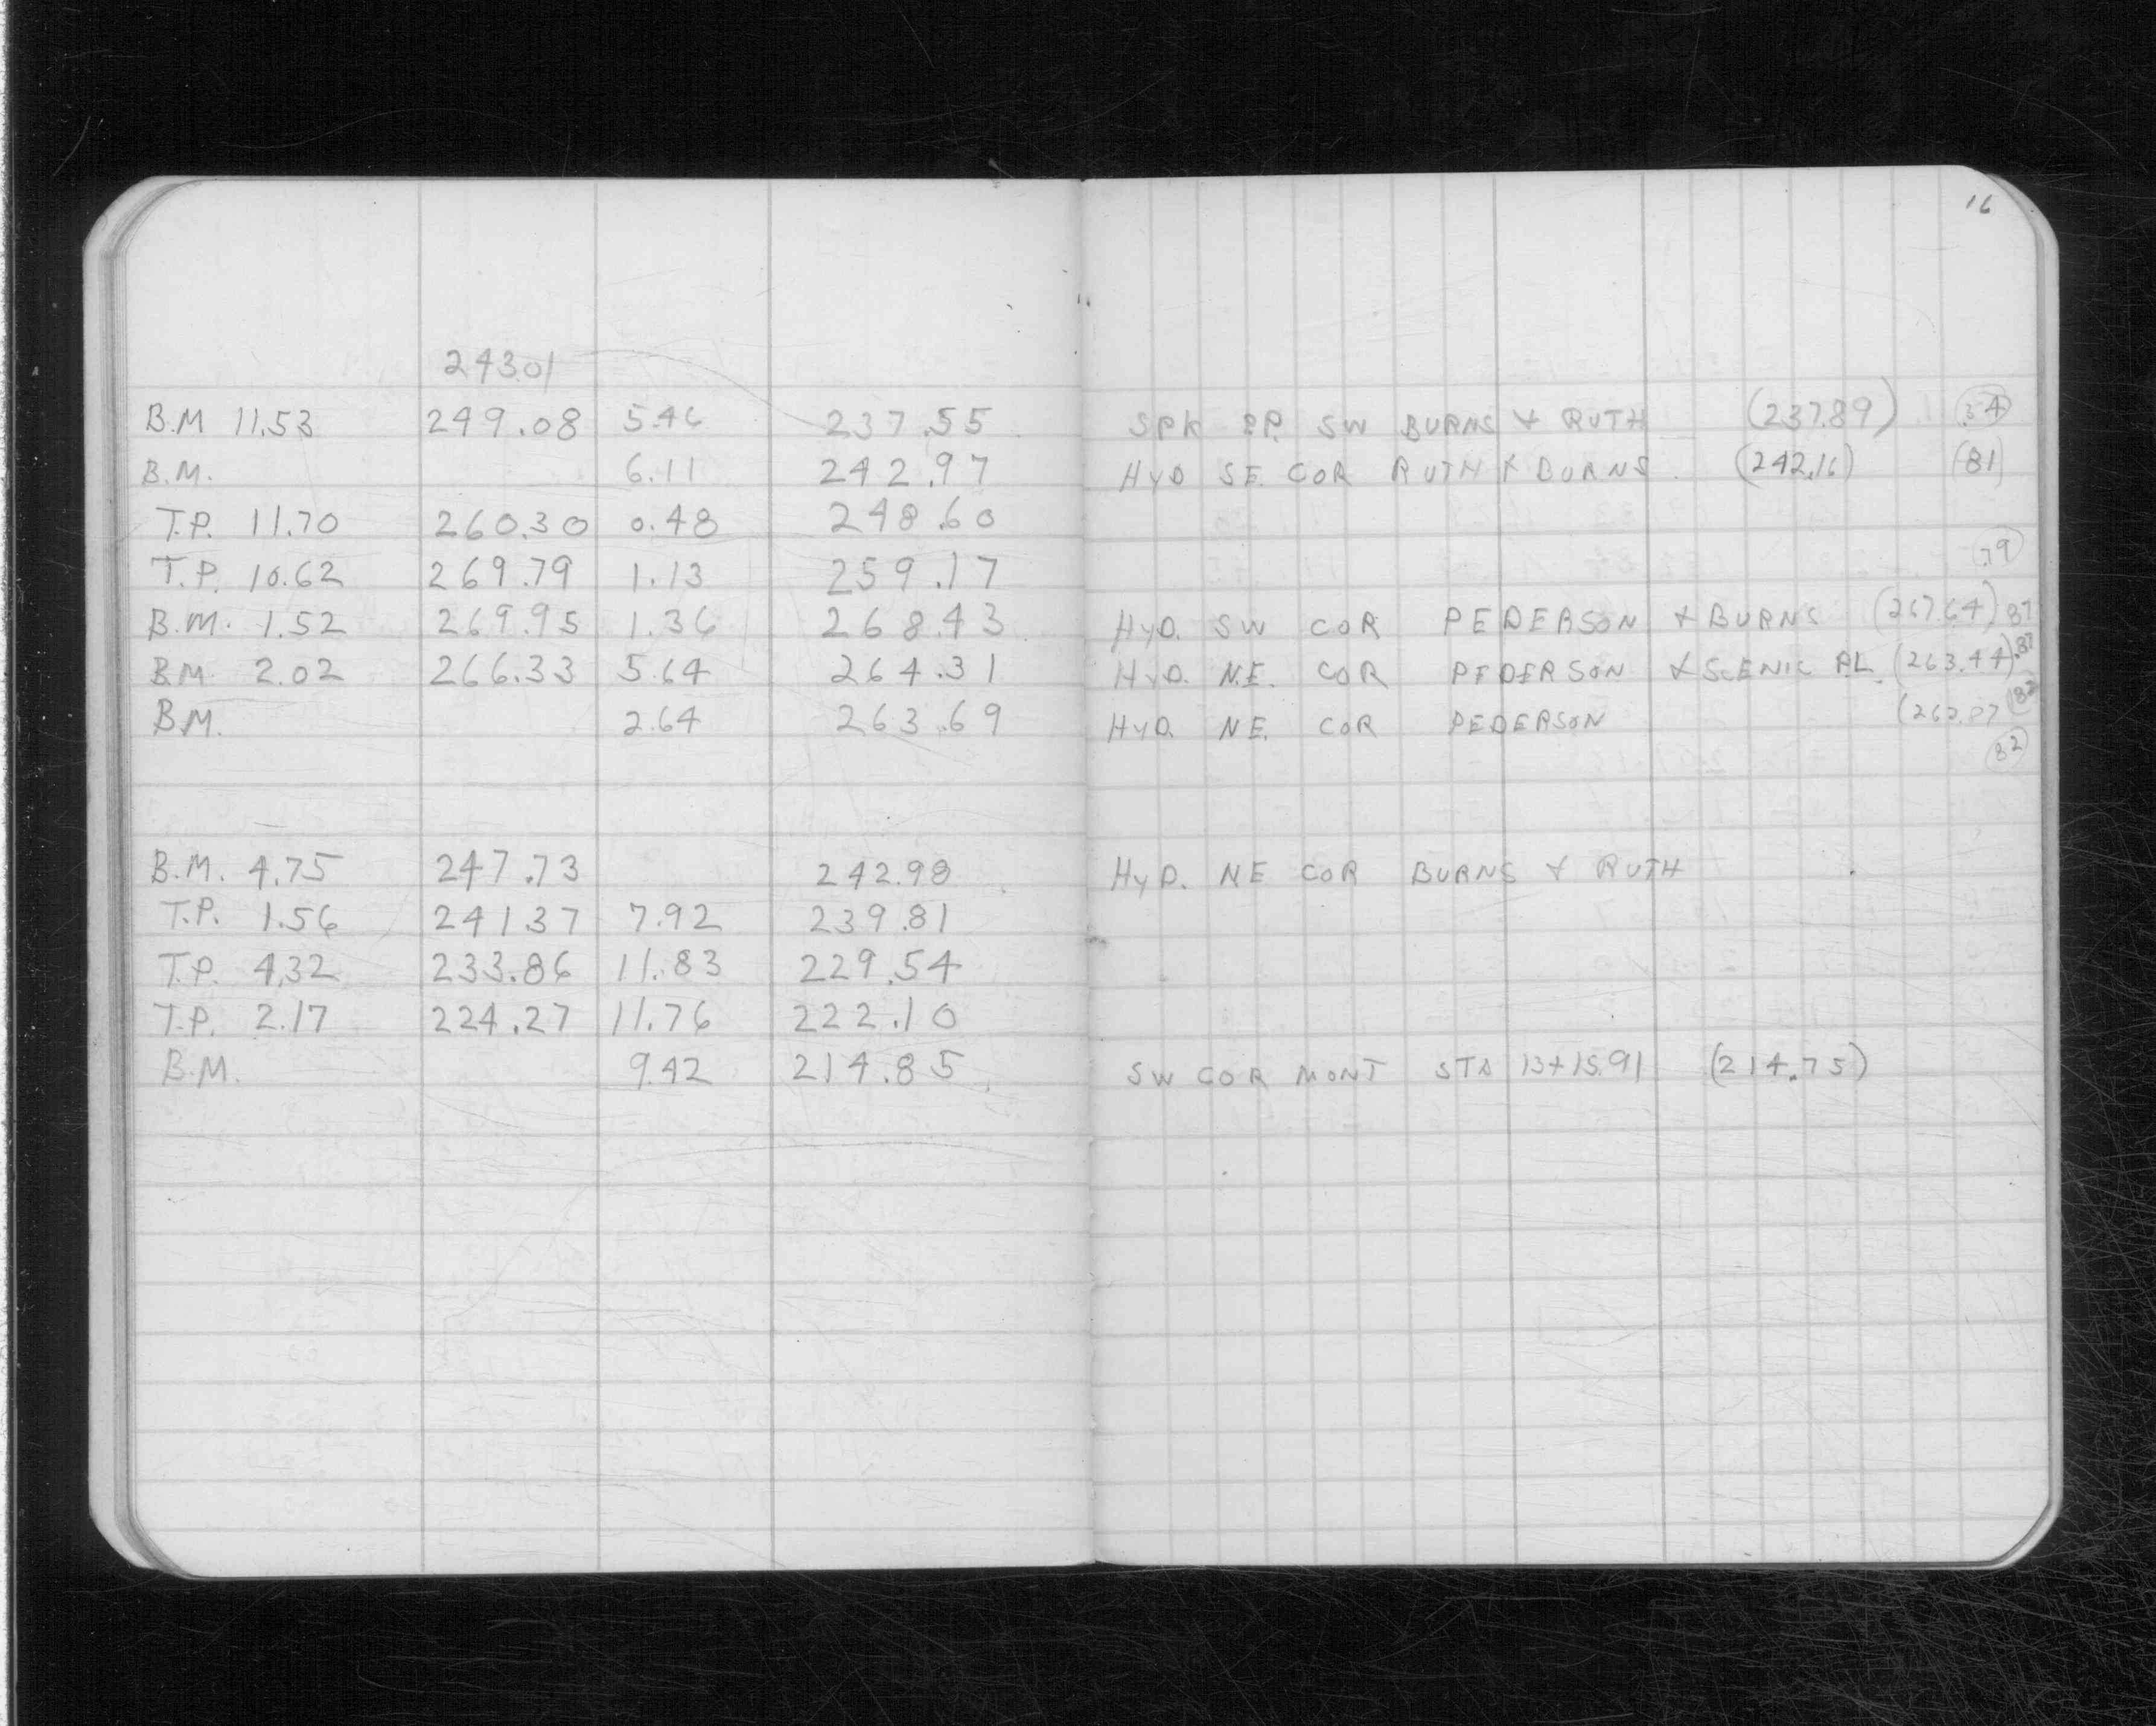 16
243.01
B.M 11.53 249.08 5.46 237.55 SPK P.P. SW BURNS & RUTH (237.89) (.34)
B.M. 6.11 242.97 HYD SE. COR RUTH & BURNS (242.16) (81)
T.P. 11.70 260.30 0.48 248.60
T.P. 10.62 269.79 1.13 259.17 .79
B.M. 1.52 269.95 1.36 268.43 HYD. SW COR PEDERSON & BURNS (267.64) 87
B.M. 2.02 266.33 5.64 264.31 HYD. N.E. COR PEDERSON & SCENIC PL. (263.44) .87
B.M. 2.64 263.69 HYD. NE. COR PEDERSON (262.87 (82
82
B.M. 4.75 247.73 242.98 HYD. NE COR BURNS & RUTH
T.P. 1.56 241.37 7.92 239.81
T.P. 4.32 233.86 11.83 229.54
T.P. 2.17 224.27 11.76 222.10
B.M. 9.42 214.85 SW COR MONT STA 13+15.91 (214.75)